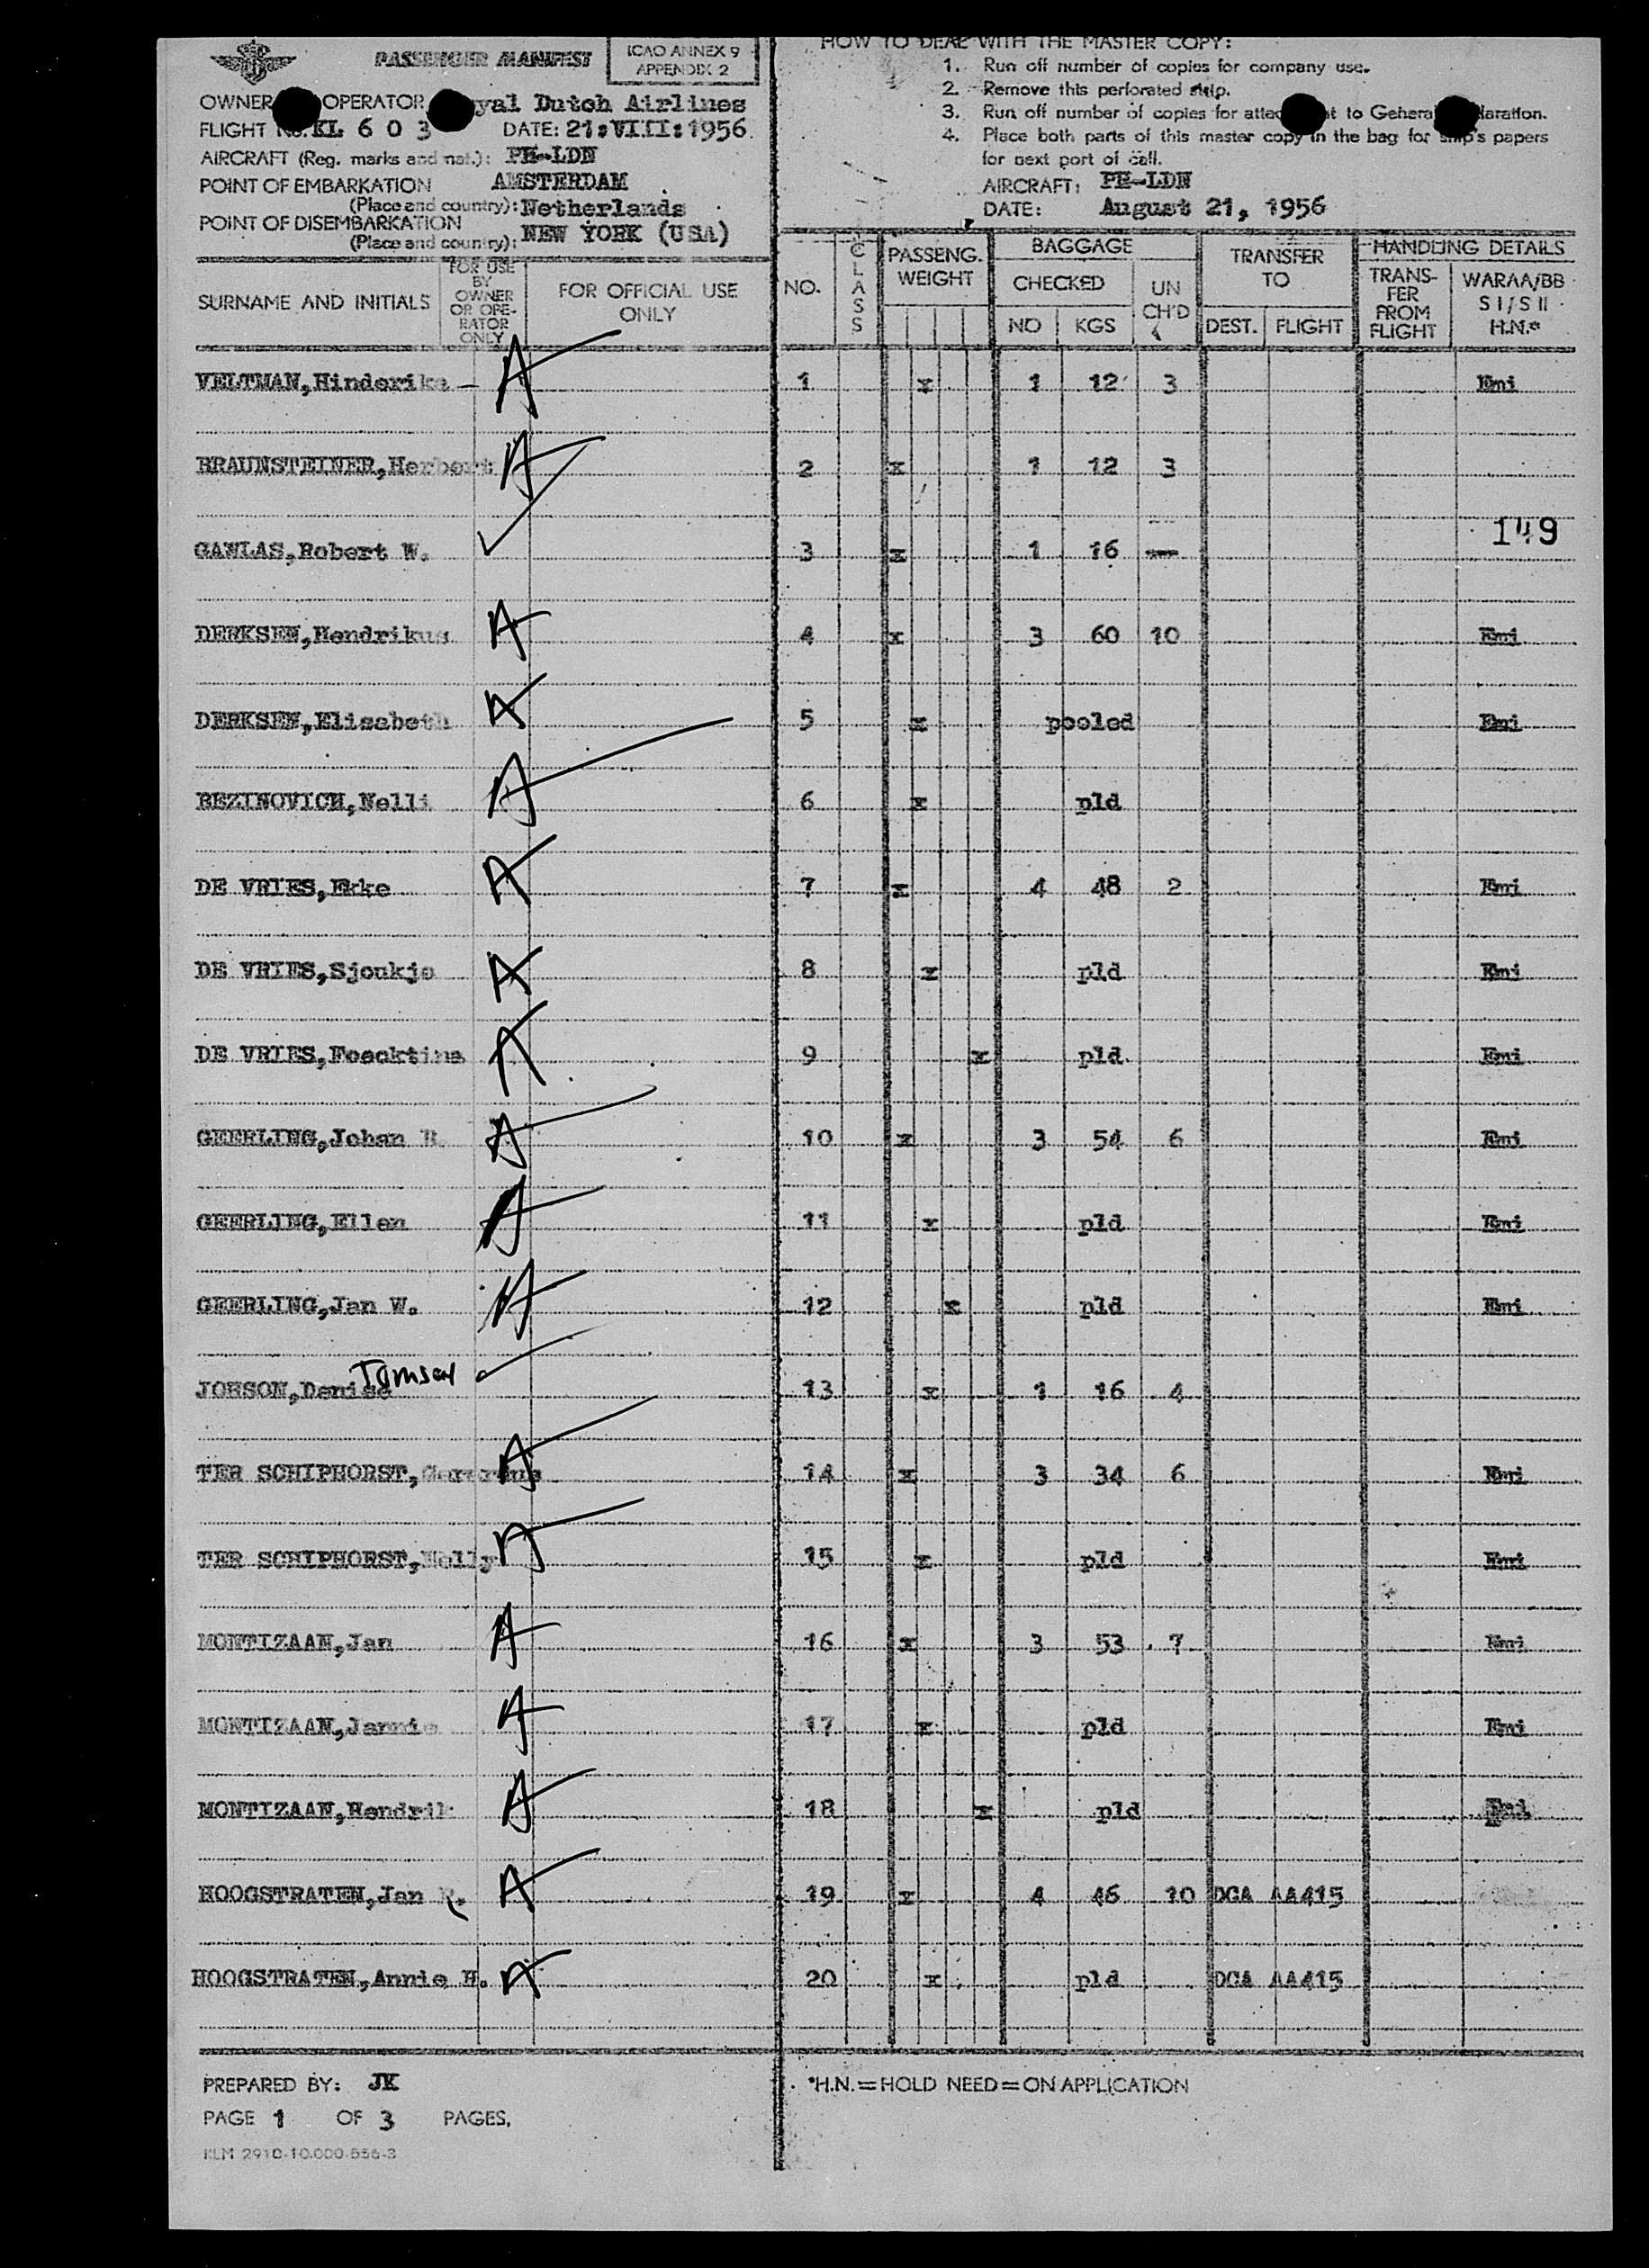 PASSENGER MANIFEST
ICAO ANNEX 9
APPENDIX 2
OWNER OPERATOR yal Dutch Airlines
FLIGHT No. KL 6 0 3 DATE: 21:VIII:1956
AIRCRAFT (Reg. marks and nat.): PH-LDN
POINT OF EMBARKATION AMSTERDAM
(Place and country): Netherlands
POINT OF DISEMBARKATION
(Place and country): NEW YORK (USA)
HOW TO DEAL WITH THE MASTER COPY:
1. Run off number of copies for company use.
2. Remove this perforated strip.
3. Run off number of copies for attac t to General laration.
4. Place both parts of this master copy in the bag for ship's papers
for next port of call.
AIRCRAFT: PH-LDN
DATE: August 21, 1956
SURNAME AND INITIALS
FOR USE BY OWNER OR OPE-RATOR ONLY
FOR OFFICIAL USE ONLY
NO.
CLASS
PASSENG. WEIGHT
BAGGAGE
CHECKED
NO KGS
UN CH'D
TRANSFER TO
DEST. FLIGHT
HANDLING DETAILS
TRANS-FER FROM FLIGHT
WARAA/BB S I / S II H.N.*
VELTMAN, Hinderika A 1 x 1 12 3 Emi
BRAUNSTEINER, Herbert A 2 x 1 12 3
149
GAWLAS, Robert W. 3 x 1 16 —
DERKSEN, Hendrikus A 4 x 3 60 10 Emi
DERKSEN, Elisabeth A 5 x pooled Emi
BEZINOVICH, Nelli A 6 x pld
DE VRIES, Ekke A 7 x 4 48 2 Emi
DE VRIES, Sjoukje A 8 x pld Emi
DE VRIES, A 9 x pld Emi
GEERLING, Johan H. A 10 x 3 54 6 Emi
GEERLING, Ellen A 11 x pld Emi
GEERLING, Jan W. A 12 x pld Emi
JOHSON, Denise 13 x 1 16 4
TER SCHIPHORST, A 14 x 3 34 6 Emi
TER SCHIPHORST, A 15 x pld Emi
MONTIZAAN, Jan A 16 x 3 53 7 Emi
MONTIZAAN, Jannie A 17 x pld Emi
MONTIZAAN, Hendrik A 18 x pld Emi
HOOGSTRATEN, Jan R. A 19 x 4 46 10 DCA AA415
HOOGSTRATEN, Annie H. A 20 x pld DCA AA415
PREPARED BY: JK
PAGE 1 OF 3 PAGES.
KLM 2910-10.000-556-3
*H.N. = HOLD NEED = ON APPLICATION